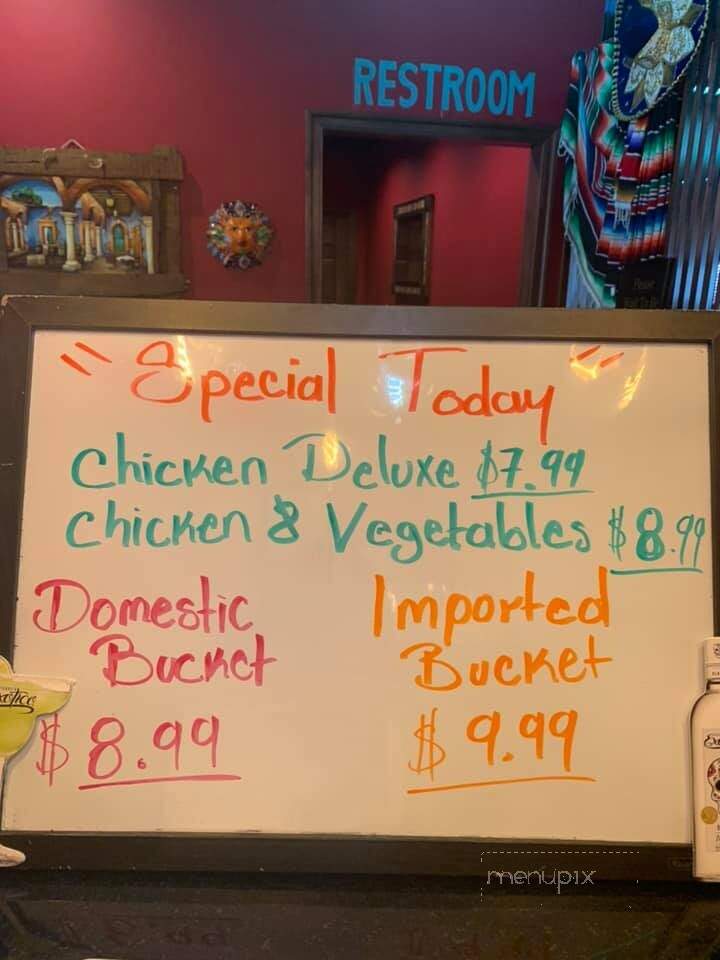 RESTROOM
"Special Today"
Chicken Deluxe $7.99
Chicken & Vegetables $8.99
Domestic
Bucket
$8.99
Imported
Bucket
$9.99
menupix